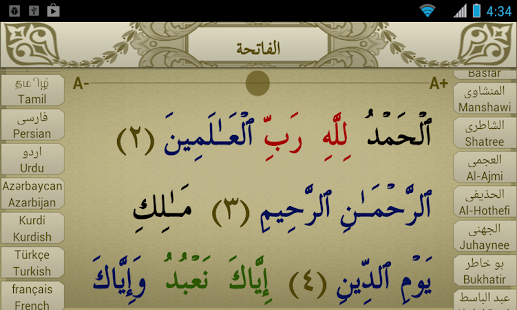 4:34
الفاتحة
A-
A+
ٱلۡحَمۡدُ لِلَّهِ رَبِّ ٱلۡعَـٰلَمِينَ (٢)
ٱلرَّحۡمَـٰنِ ٱلرَّحِيمِ (٣) مَـٰلِكِ
يَوۡمِ ٱلدِّينِ (٤) إِيَّاكَ نَعۡبُدُ وَإِيَّاكَ
தமிழ்
Tamil
فارسی
Persian
اردو
Urdu
Azərbaycan
Azarbijan
Kurdí
Kurdish
Türkçe
Turkish
français
French
Basfar
المنشاوى
Manshawi
الشاطرى
Shatree
العجمى
Al-Ajmi
الحذيفى
Al-Hothefi
الجهنى
Juhaynee
بو خاطر
Bukhatir
عبد الباسط